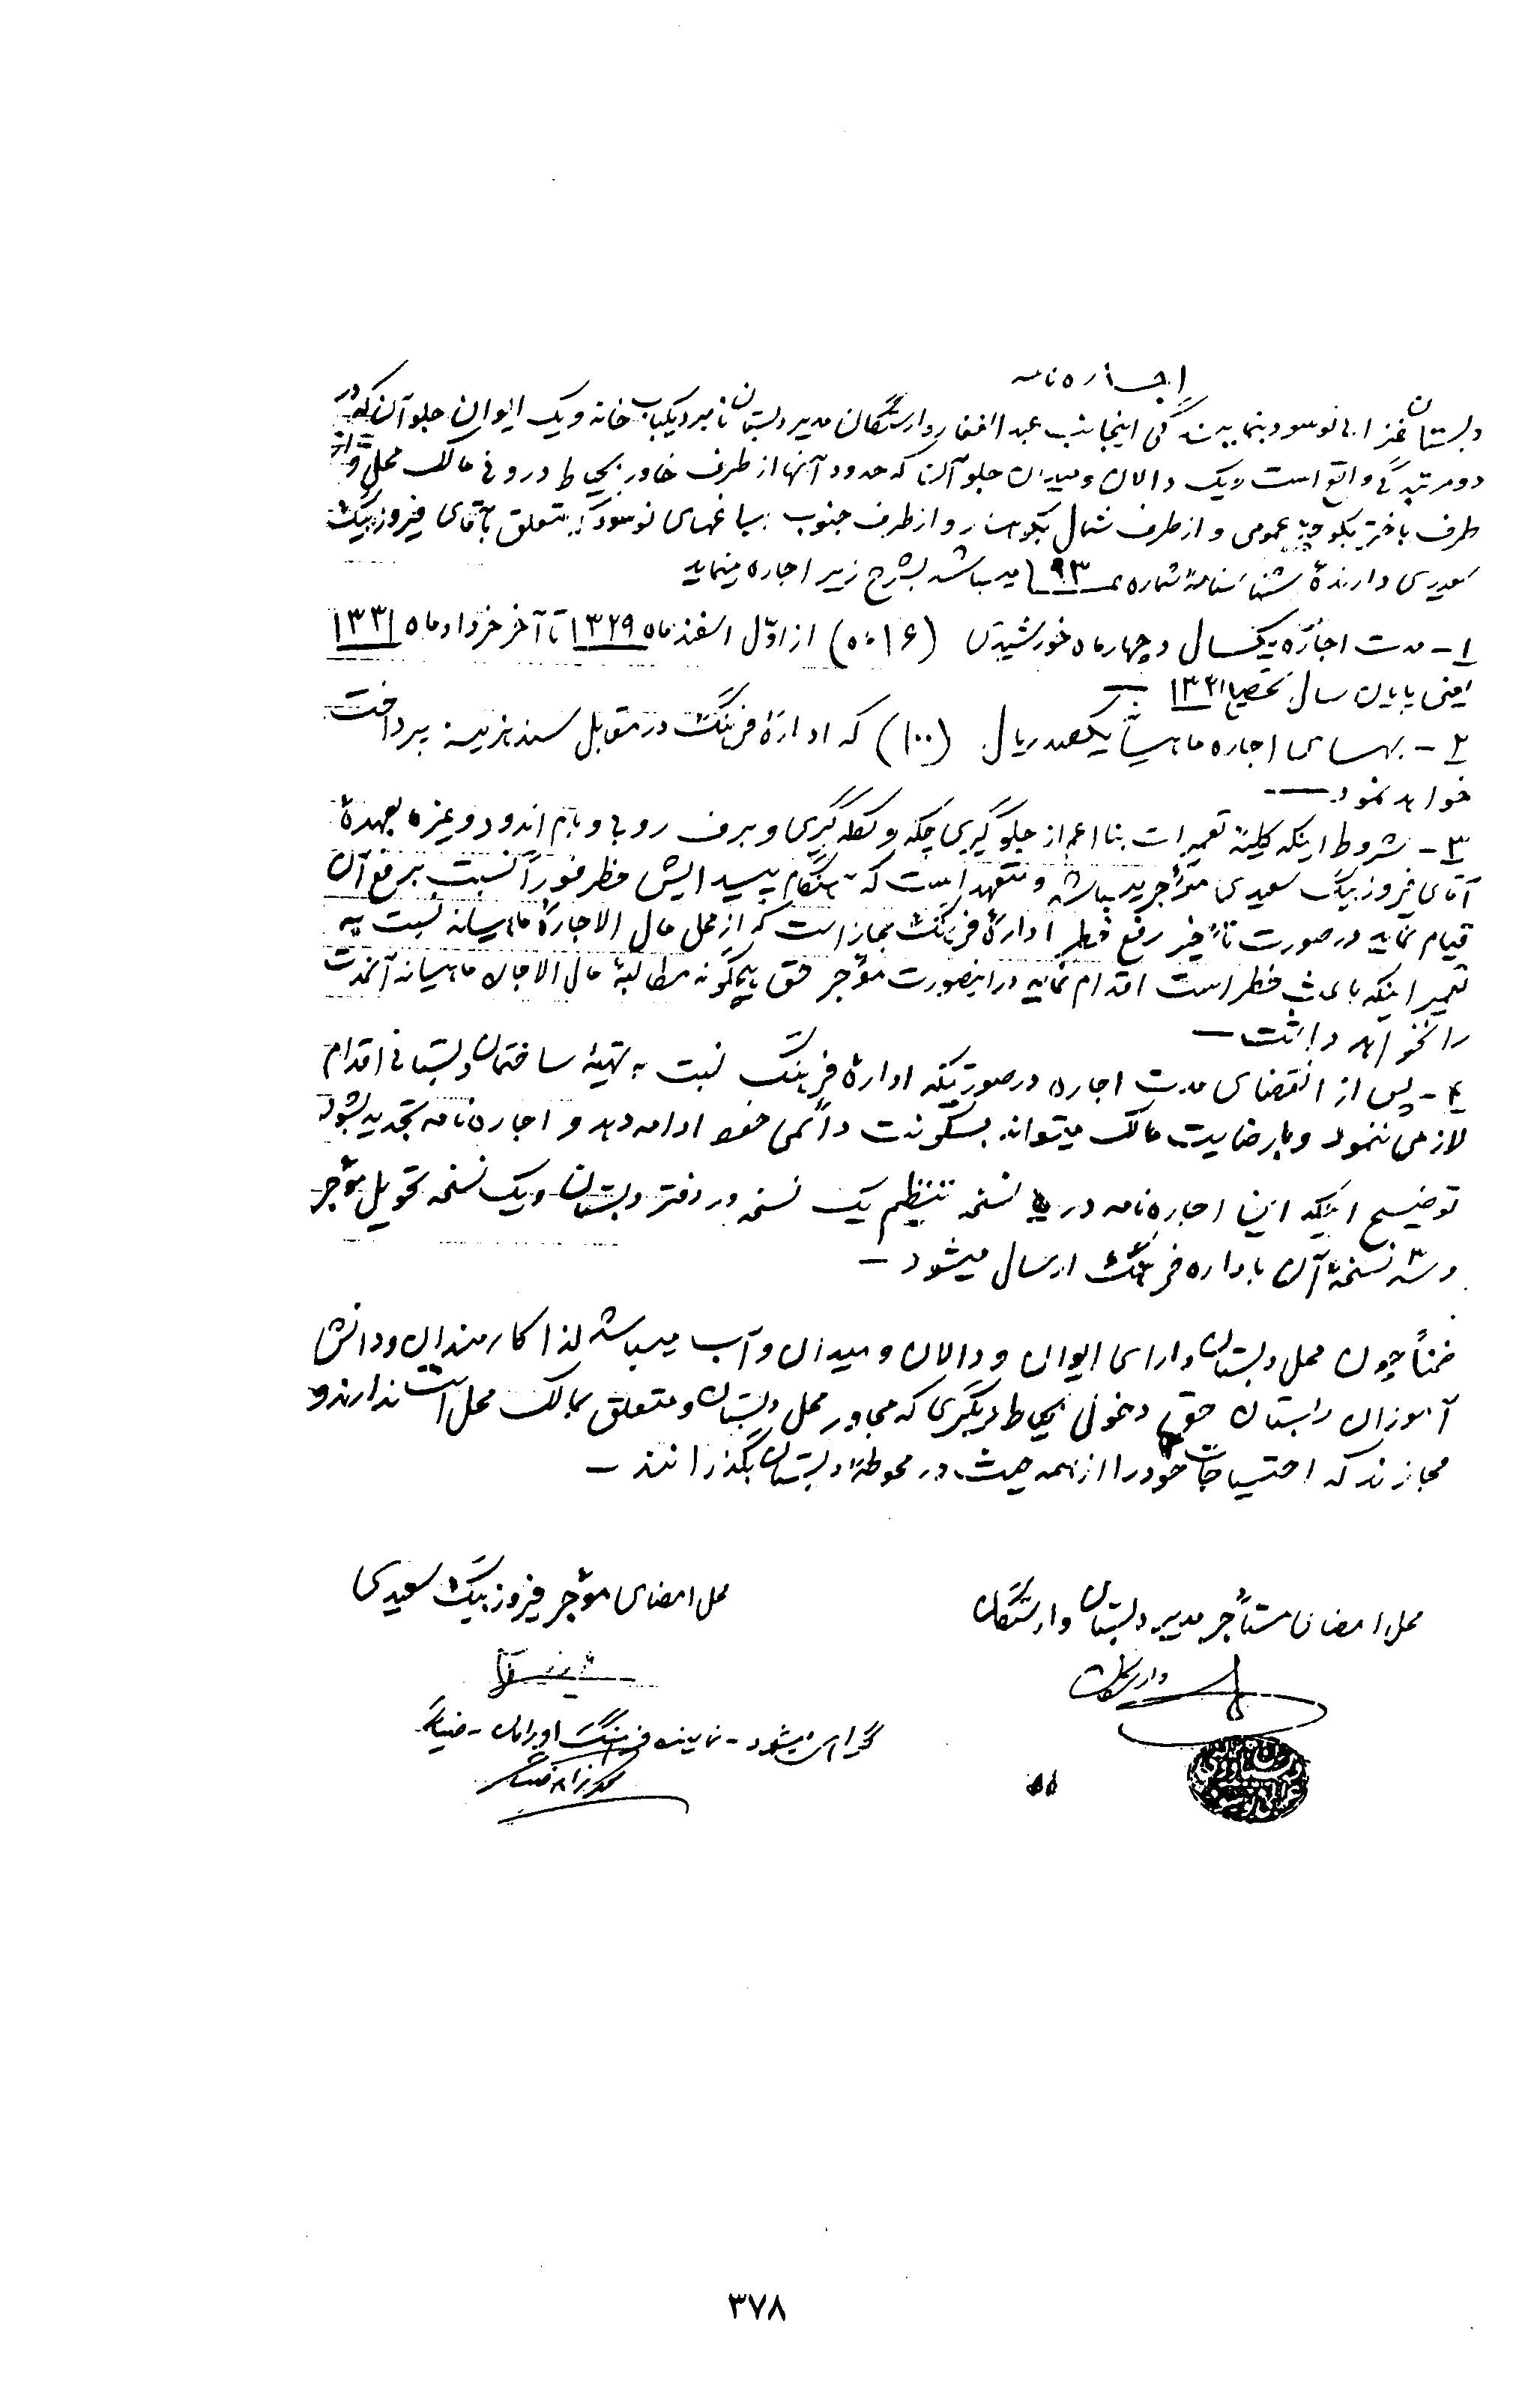 اجاره نامه
دبستان غزالی نوسود بنمایندگی اینجانب عبدالغفار وارستگان مدیر دبستان نامبرده یکباب خانه و یک ایوان جلو آن که در
دو مرتبه گی واقع است و یک دالان و میدان جلو آن که حدود آنها از طرف خاور بحیاط درونی مالک محل و از
طرف باختر بکوچه عمومی و از طرف شمال بکوهسار و از طرف جنوب بباغهای نوسود که متعلق بآقای فیروز بیگ
سعیدی دارندهٔ شناسنامهٔ شماره ۹۳ میباشد بشرح زیر اجاره مینماید
۱- مدت اجاره یکسال و چهار ماه خورشیدی (۱۶ ماه) از اوّل اسفند ماه ۱۳۲۹ تا آخر خرداد ماه ۱۳۳۱
یعنی پایان سال تحصیلی ۱۳۳۱ —
۲- بهای اجاره ماهیانه یکصد ریال (۱۰۰) که ادارهٔ فرهنگ در مقابل سند هزینه پرداخت
خواهد نمود —
۳- مشروط اینکه کلیهٔ تعمیرات بنا اعم از جلوگیری چکه و لکه گیری و برف روبی و بام اندود و غیره بعهدهٔ
آقای فیروز بیگ سعیدی مؤجر میباشد و متعهد است که هنگام پیدایش خطر فوراً نسبت برفع آن
قیام نماید در صورت تأخیر رفع خطر ادارهٔ فرهنگ مجاز است که از محل مال الاجارهٔ ماهیانه نسبت به
تعمیر اینکه باعث خطر است اقدام نماید در اینصورت مؤجر حق هیچگونه مطالبهٔ مال الاجاره ماهیانه آنمدت
را نخواهد داشت —
۴- پس از انقضای مدت اجاره در صورتیکه ادارهٔ فرهنگ نسبت به تهیهٔ ساختمان دبستانی اقدام
لازمی ننمود و با رضایت مالک میتواند بسکونت دائمی خود ادامه دهد و اجاره نامه تجدید بشود
توضیح اینکه این اجاره نامه در ۵ نسخه تنظیم یک نسخه در دفتر دبستان و یک نسخه تحویل مؤجر
و سه نسخهٔ آن باداره فرهنگ ارسال میشود —
ضمناً چون محل دبستان دارای ایوان و دالان و میدان و آب میباشد لذا کارمندان و دانش
آموزان دبستان حق دخول بحیاط دیگری که مجاور محل دبستان و متعلق بمالک محل است ندارند و
مجازند که احتیاجات خود را از همه حیث در محوطهٔ دبستان بگذرانند —
محل امضای مستأجر مدیر دبستان وارستگان
محل امضای مؤجر فیروز بیگ سعیدی
وارستگان
گواهی میشود - نماینده فرهنگ اورامان - ضیائی
۳۷۸